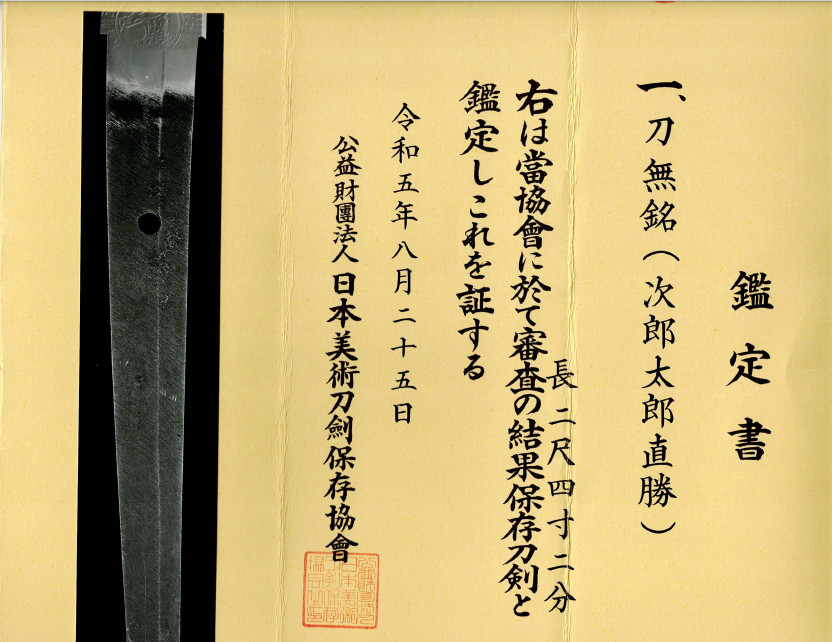 鑑定書
一、刀無銘（次郎太郎直勝）
長二尺四寸二分
右は當協會に於て審査の結果保存刀剣と
鑑定しこれを証する
令和五年八月二十五日
公益財團法人日本美術刀劍保存協會